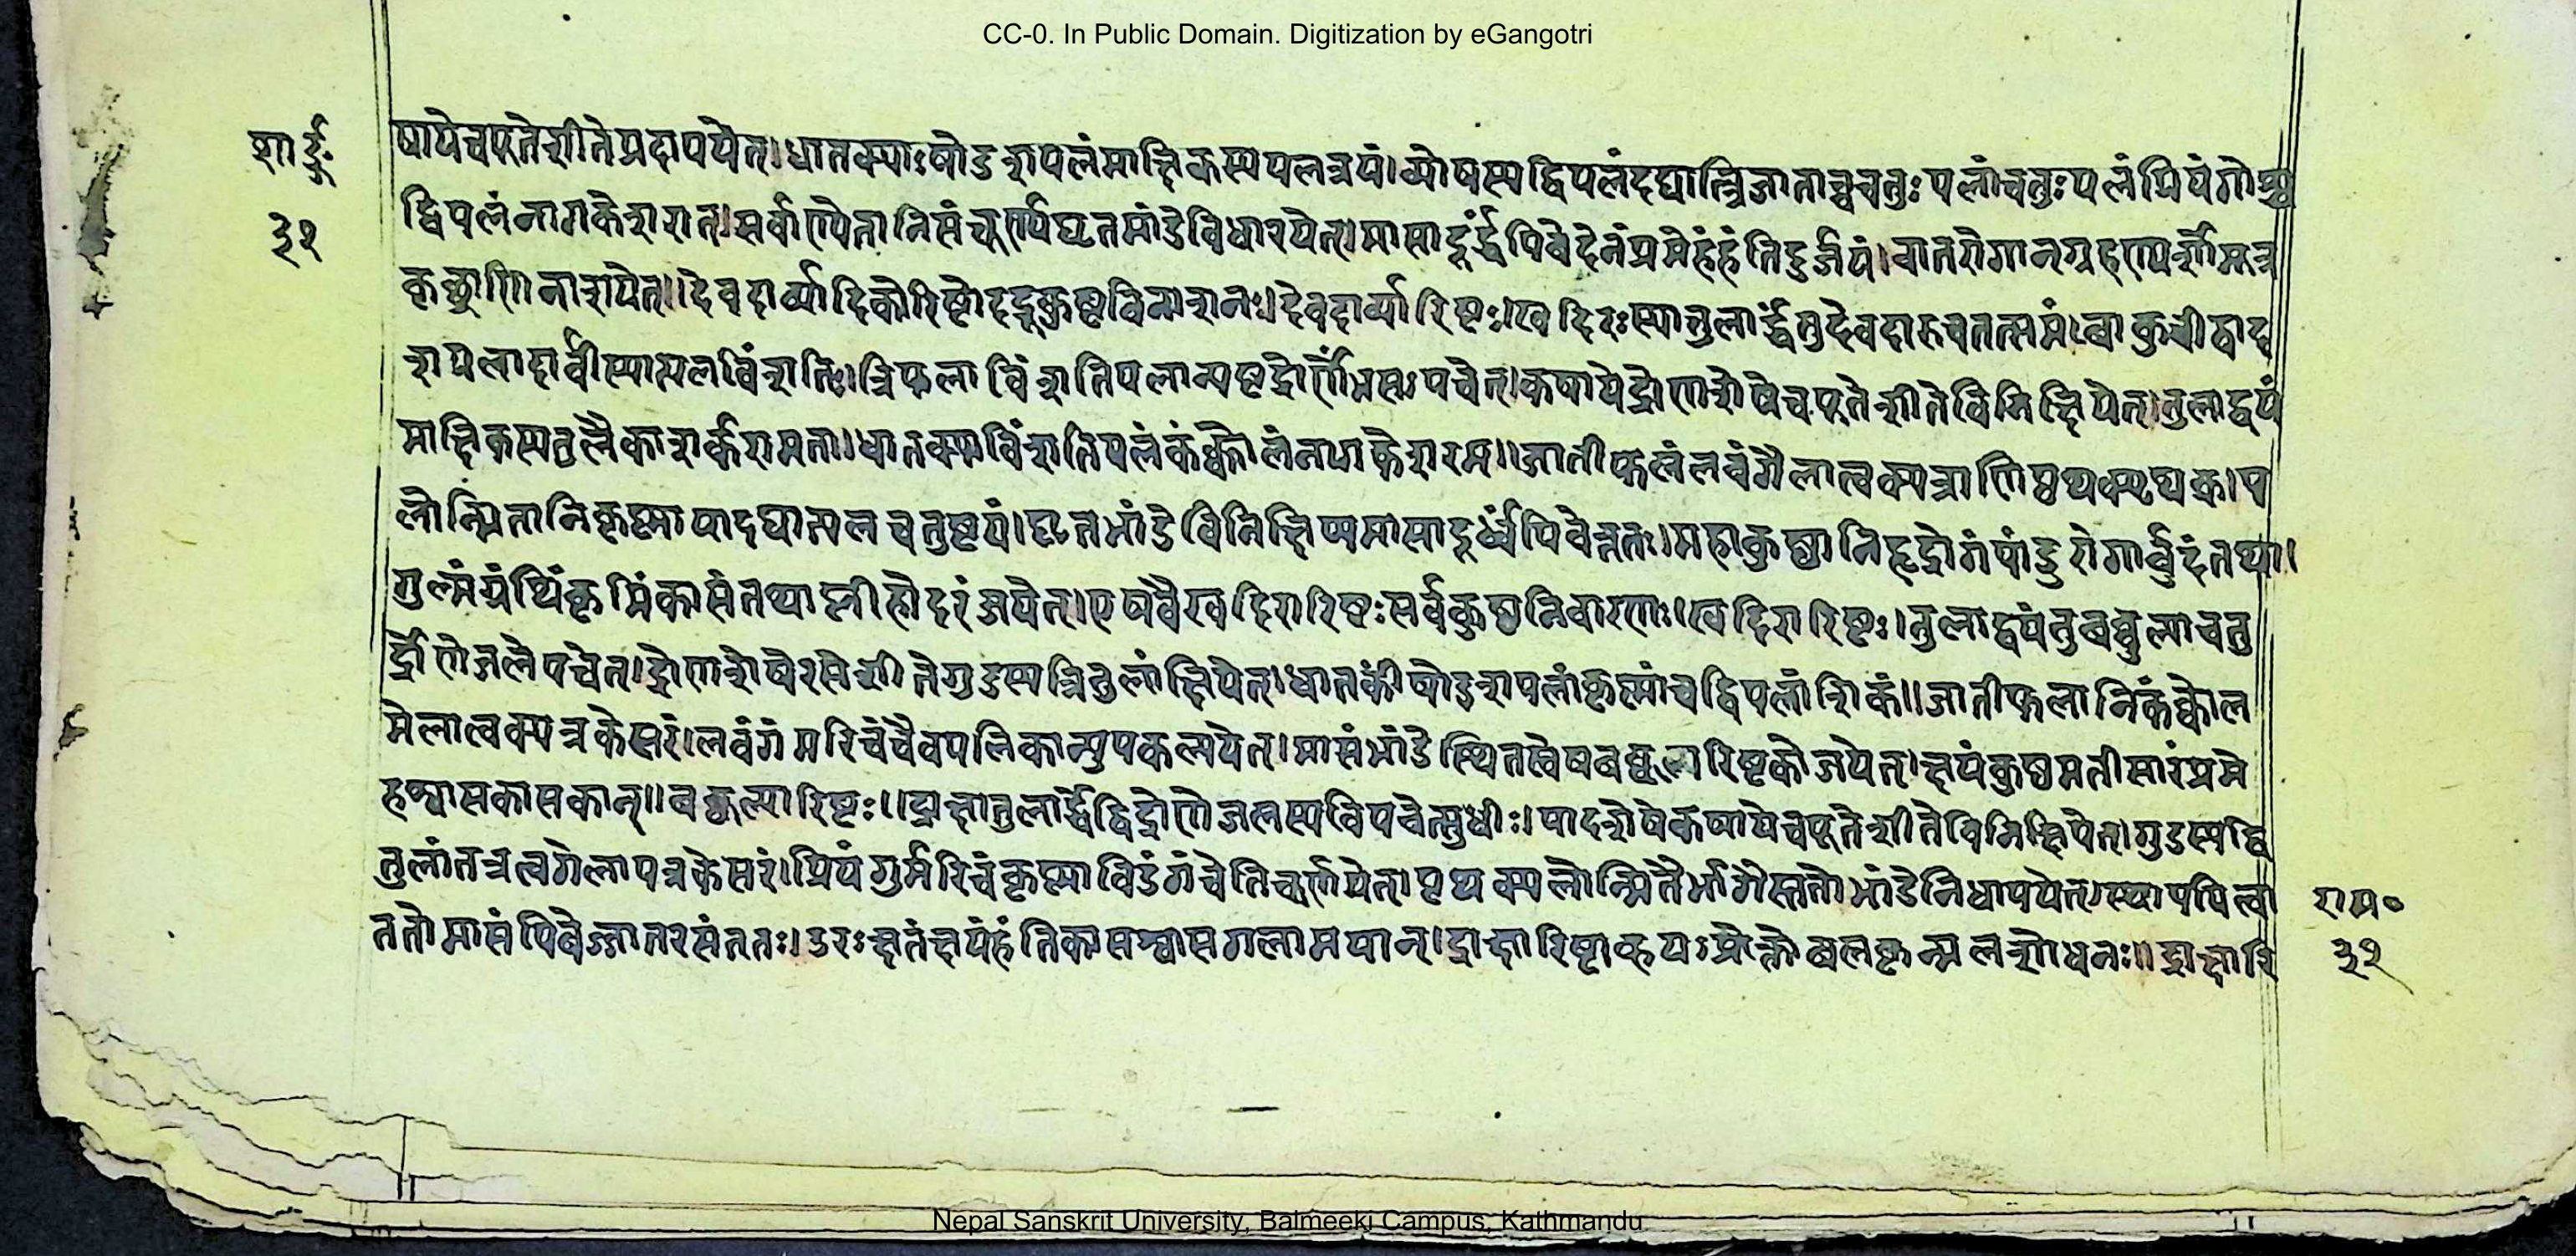 CC-0. In Public Domain. Digitization by eGangotri
षायेचपूतेशीतेप्रदापयेत्।धातक्याःषोडशपलंमाक्षिकस्यपलत्रयं।व्योषस्यद्विपलंदद्यात्त्रिजाताच्चचतुःपलांचतुःपलंप्रियंगोश्च
शार्ङ्ग०
द्विपलंनागकेशरात्।सर्वाण्येतानिसंचूर्ण्यघृतभांडेविधारयेत्।मासादूर्द्ध्वंपिवेदेनंप्रमेहंहंतिदुर्जयं।वातरोगानग्रहण्यर्शोमूत्र
३१
कृछ्राणिनाशयेत्।।देवदार्व्यादिकोरिष्टोदद्रूकुष्टविनाशनः।।देवदार्व्यारिष्टः।।खदिरःस्यातुलार्द्धंतुदेवदारुचतत्समं।वाकुचीद्वाद
शपलादार्वीस्यात्पलविंशतिः।त्रिफलाविंशतिपलान्यष्टद्रोणेंभसःपचेत्।कषायेद्रोणशेषेचपूतेशीतेविनिक्षिपेत्।तुलाद्वयं
माक्षिकस्यतुलैकाशर्करामता।धातक्याविंशतिपलंकंक्कोलंनागकेशरम्।।जातीफलंलवंगैलात्वक्पत्राणिपृथक्पृथक्।प
लोन्मितानिकृष्णायादद्यात्पलचतुष्टयं।घृतभांडेविनिक्षिप्यमासादूर्ध्वंपिवेन्नतः।महाकुष्ठानिहृद्रोगंपांडुरोगार्वुदंतथा।
गुल्मंग्रंथिंकृमिंकासंतथाप्लीहोदरंजयेत्।एषवैखदिरारिष्टःसर्वकुष्ठनिवारणः।खदिरारिष्टः।तुलाद्वयंतुबब्बुलाचतु
र्द्रोणेजलेपचेत्।द्रोणशेषेरसेशीतेगुडस्यत्रितुलांक्षिपेत्।धातकीषोडशपलांकृष्णांचद्विपलांशिकं।।जातीफलानिकंक्कोल
मेलात्वक्पत्रकेसरं।लवंगंमरिचंचैवपलिकान्युपकल्पयेत्।मासंभांडेस्थितस्त्वेषबब्बूलारिष्टकोजयेत्।क्षयंकुष्ठमतीसारंप्रमे
हश्वासकासकान्।।बब्बूलारिष्टः।।द्राक्षातुलार्द्धंद्विद्रोणेजलस्यविपचेत्सुधीः।पादशेषेकषायेचपूतेशीतेविनिक्षिपेत्।गुडस्यद्वि
तुलांतत्रत्वगेलापत्रकेसरं।प्रियंगुर्मरिचंकृष्णाविडंगंचेतिचूर्णयेत्।पृथक्पलोन्मितैर्भागैस्ततोभांडेनिधापयेत्।स्थापयित्वा
राम०
ततोमासंपिबेज्जातरसंततः।उरःक्षतंक्षयंहंतिकासश्वासगलामयान्।द्राक्षारिष्टाव्हयःप्रोक्तोबलकृन्मलशोधनः।।द्राक्षारि
३१
Nepal Sanskrit University, Balmeeki Campus, Kathmandu